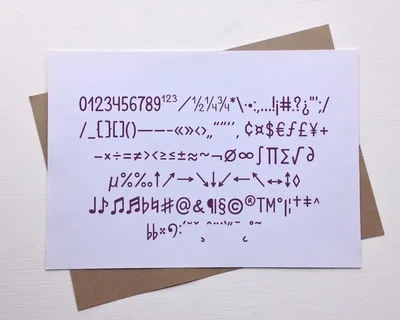 0123456789¹²³⁄½¼¾*\·•:,...!¡#.?¿"';/
/_{}[]()—–-«»‹›„“”‘’‚¢¤$€ƒ£¥+
−×÷=≠><≥≤±≈~¬∅∞∫∏∑√∂
µ%‰↑↗→↘↓↙←↖↔↕◊
♩♪♫♬♭♮♯@&¶§©®™°|¦†‡^